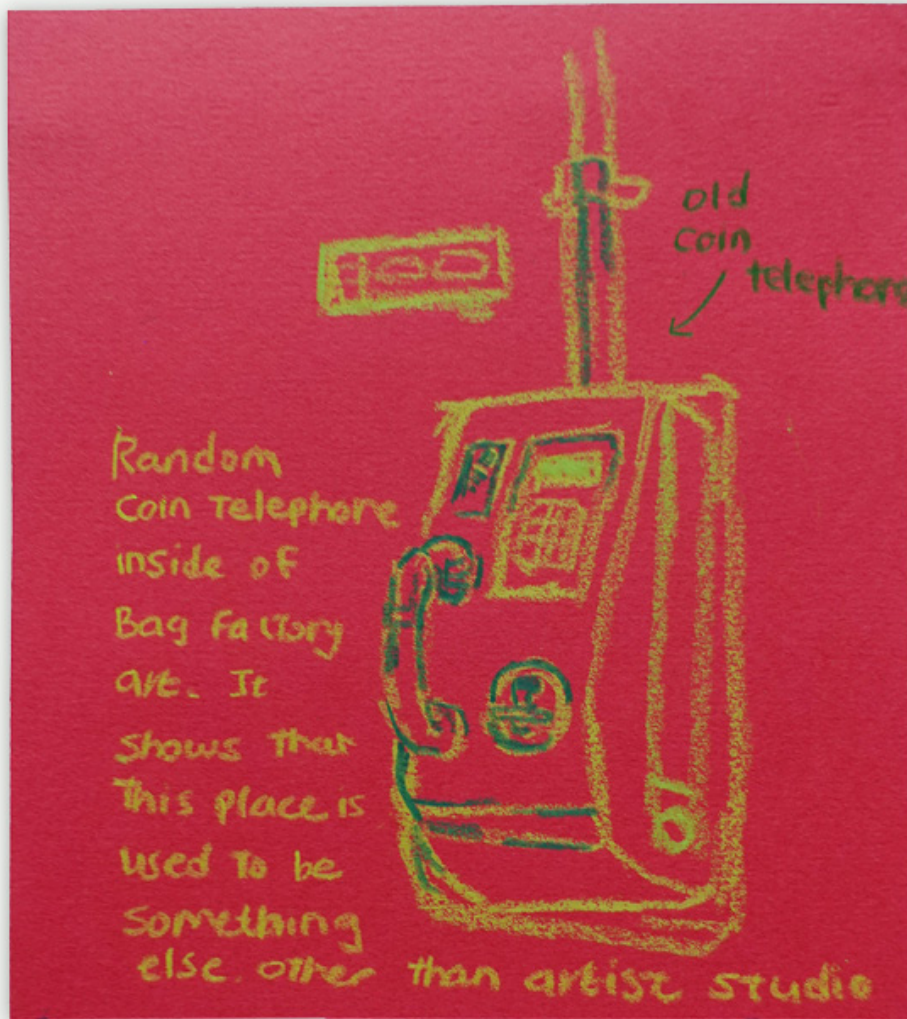 old
coin
telephone
Random
Coin Telephone
inside of
Bag Factory
art. It
shows that
this place is
used to be
something
else. other than artist studio